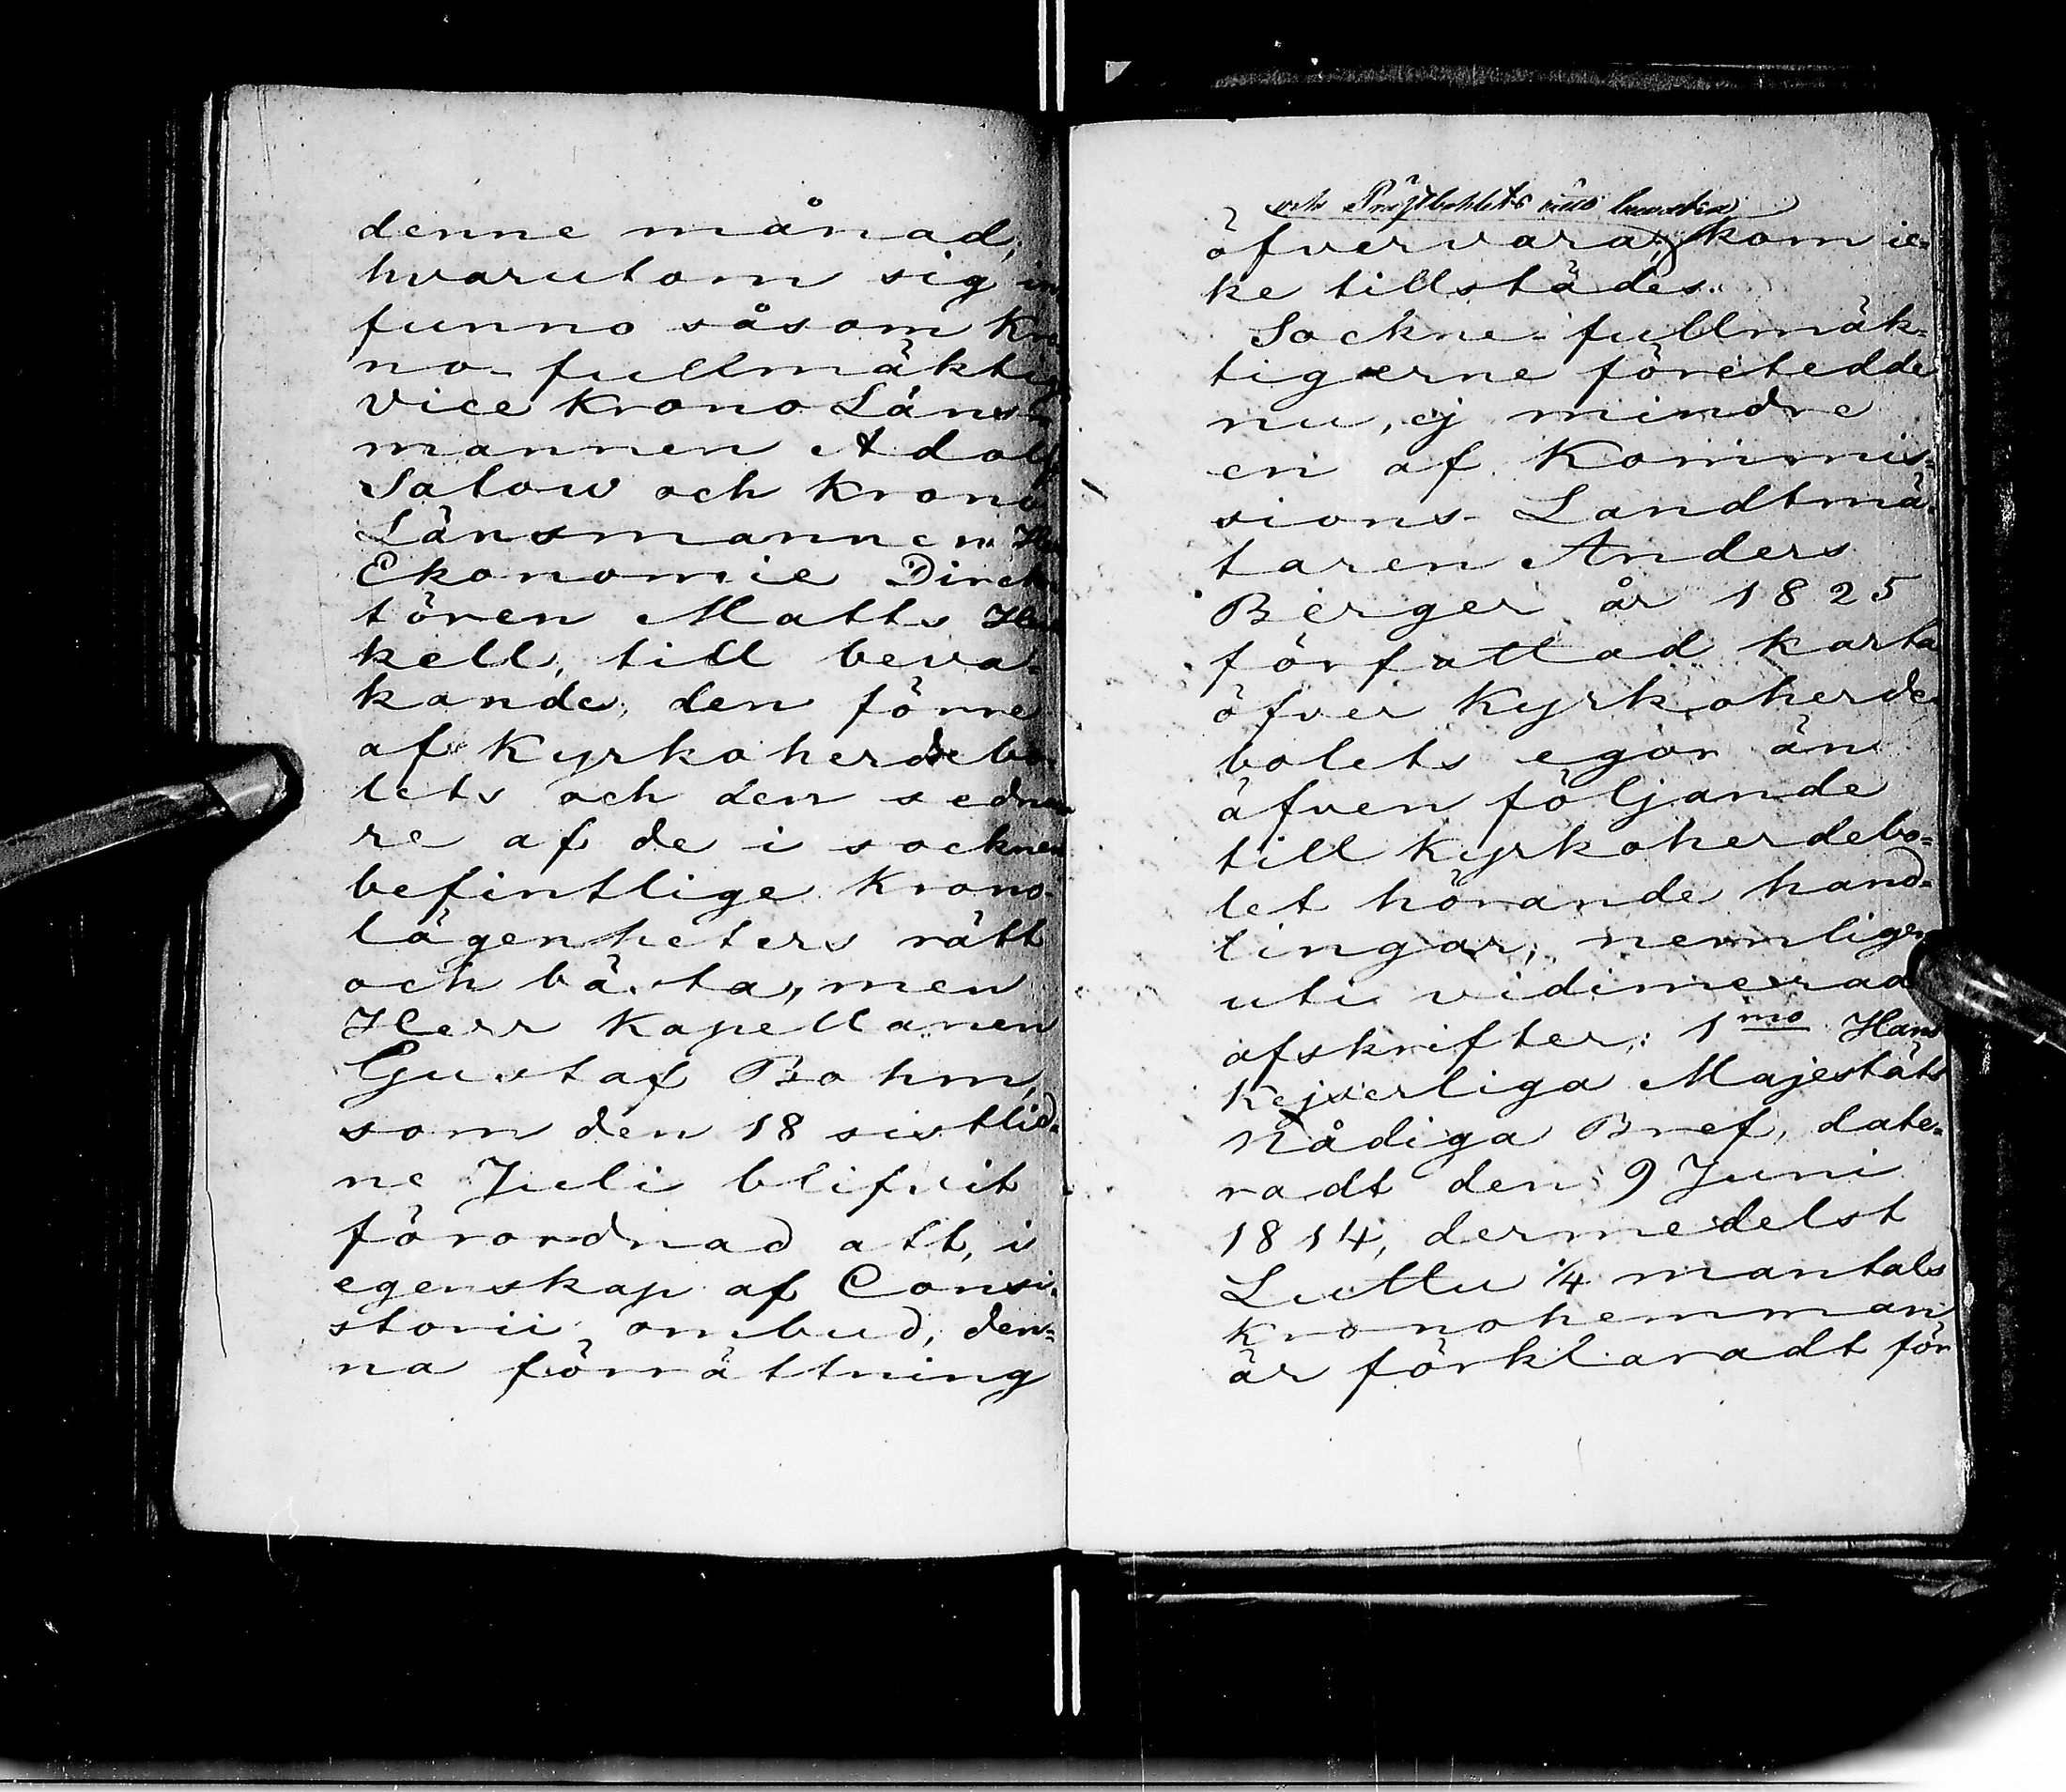 denne månad,
hvarutom sig in
funno såsom Kro
no- fullmäktige
Vice Krono Läns
mannen Adolf
Salow och Krono
Länsmannen Herr
Ekonomie Direk
tören Matts
kell, till beva-
kande, den förre
af Kyrkoherdebo-
lets och den sedna
re af de i socknen
befintlige Krono-
lägenheters rätt
och bästa, men
Herr Kapellanen
Gustaf Bohm,
som den 18 sistlid-
ne Juli blifvit
förordnad att, i
egenskap af Consi-
storii ombud, den=
na förrättning
och Prestbohlets
öfvervara, kom ic-
ke tillstädes.
Sockne-fullmäk-
tigerne företedde
nu, ej mindre
en af Kommis-
sions- Landtmä-
taren Anders
Berger år 1825
författad karta
öfver Kyrkoherde
bolets egor än
äfven följande
till Kyrkoherdebo-
let hörande hand-
lingar, nemligen
uti vidimerad
afskrifter: 1mo Hans
Kejserliga Majestäts
Nådiga Bref, date-
radt den 9 Juni
1814, dermedelst
Luttu 1/4 mantals
Kronohemman
är förklaradt för